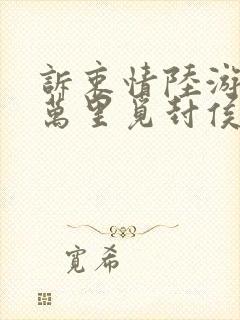 訴衷情陸游
萬里覓封侯
寬希